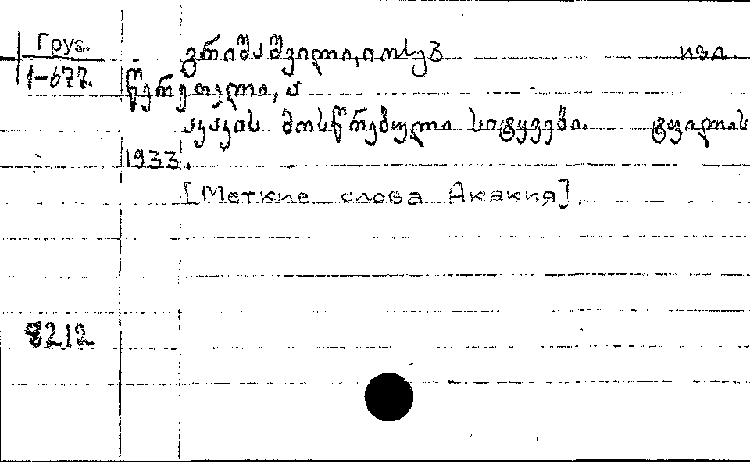 Груз.
1-677.
გრიშაშვილი, იოსებ изд.
წერეთელი, ა
აკაკის მოსწრებული სიტყვები. ტფილის
1933.
[Меткие слова Акакия].
8212